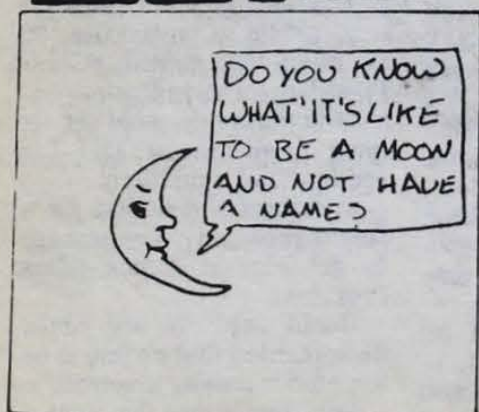 DO YOU KNOW
WHAT'IT'S LIKE
TO BE A MOON
AND NOT HAVE
A NAME?